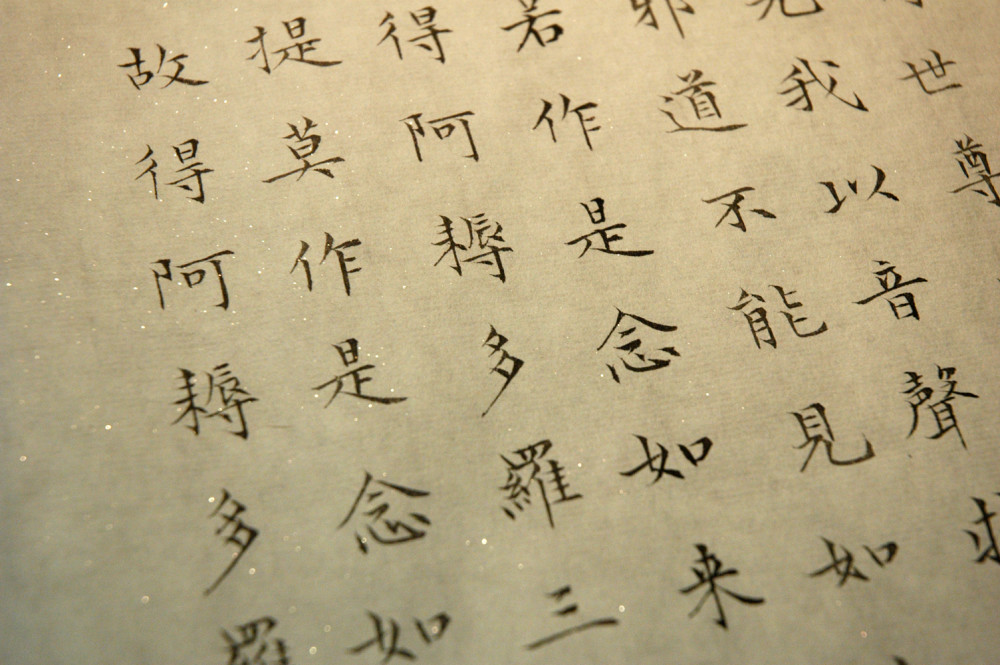 世尊
我以音聲
邪道不能見如
若作是念如来
得阿耨多羅三
提莫作是念如
故得阿耨多羅